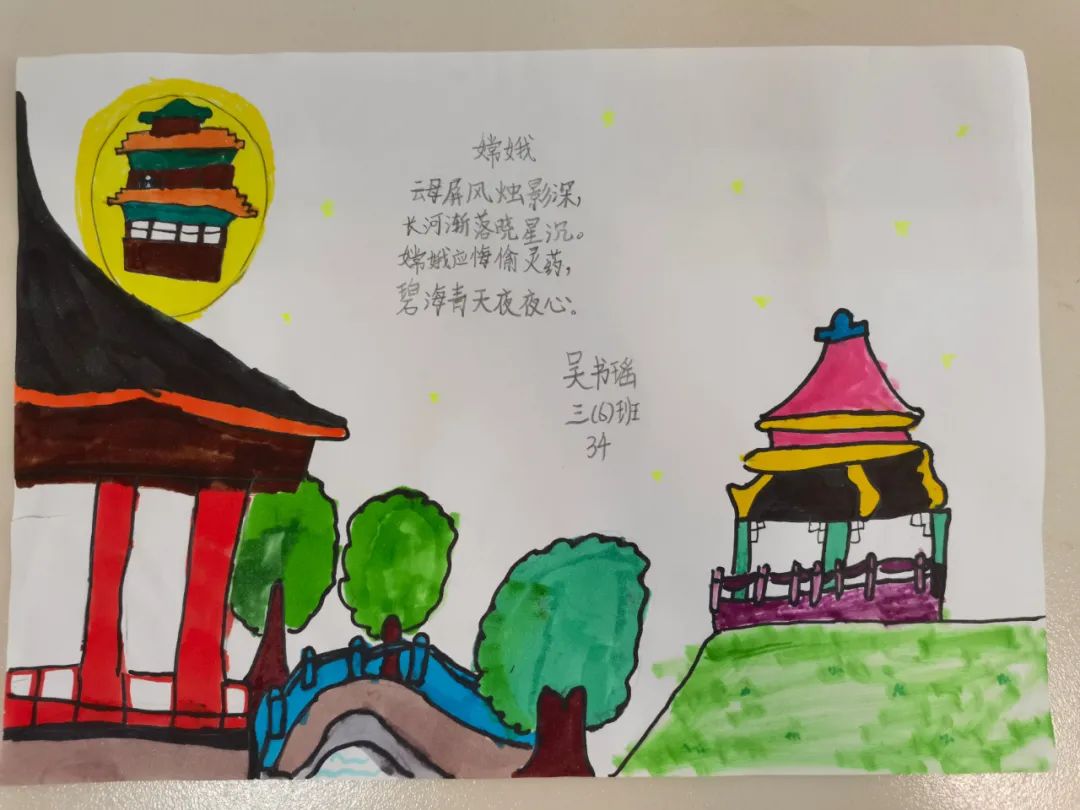 嫦娥
云母屏风烛影深,
长河渐落晓星沉。
嫦娥应悔偷灵药,
碧海青天夜夜心。
吴书瑶
三(6)班
34